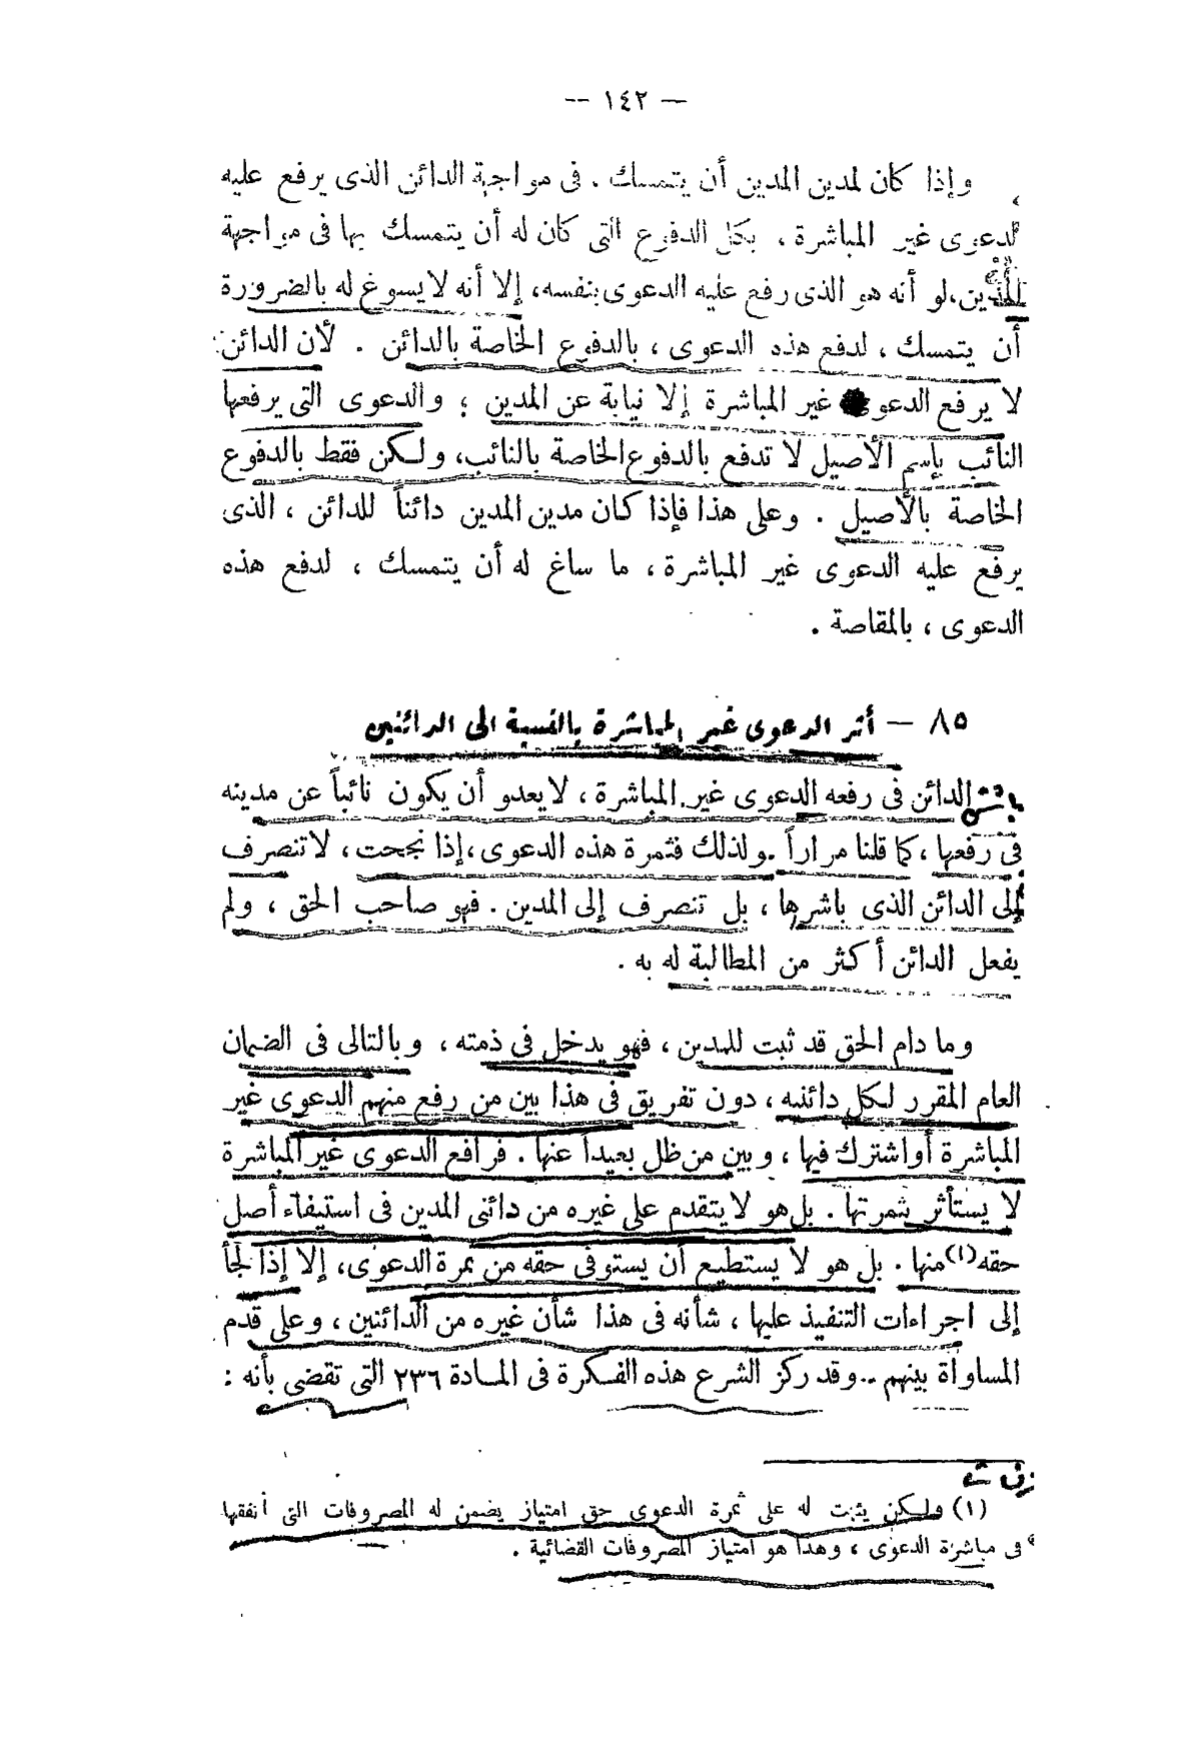 — ١٤٢ —
وإذا كان لمدين المدين أن يتمسك . فى مواجهة الدائن الذى يرفع عليه
الدعوى غير المباشرة ، بكل الدفوع التى كان له أن يتمسك بها فى مواجهة
المدين،لو أنه هو الذى رفع عليه الدعوى بنفسه، إلا أنه لا يسوغ له بالضرورة
أن يتمسك ، لدفع هذه الدعوى ، بالدفوع الخاصة بالدائن . لأن الدائن
لا يرفع الدعوى غير المباشرة إلا نيابة عن المدين ؛ والدعوى التى يرفعها
النائب بإسم الأصيل لا تدفع بالدفوع الخاصة بالنائب، ولكن فقط بالدفوع
الخاصة بالأصيل . وعلى هذا فإذا كان مدين المدين دائناً للدائن ، الذى
يرفع عليه الدعوى غير المباشرة ، ما ساغ له أن يتمسك ، لدفع هذه
الدعوى ، بالمقاصة .
٨٥ — أثر الدعوى غير المباشرة بالنسبة الى الدائنين
الدائن فى رفعه الدعوى غير المباشرة ، لا يعدو أن يكون نائباً عن مدينه
فى رفعها ، كما قلنا مراراً . ولذلك فثمرة هذه الدعوى ، إذا نجحت ، لا تنصرف
إلى الدائن الذى باشرها ، بل تنصرف إلى المدين . فهو صاحب الحق ، ولم
يفعل الدائن أكثر من المطالبة له به .
وما دام الحق قد ثبت للمدين ، فهو يدخل فى ذمته ، وبالتالى فى الضمان
العام المقرر لكل دائنيه ، دون تفريق فى هذا بين من رفع منهم الدعوى غير
المباشرة أو اشترك فيها ، وبين من ظل بعيداً عنها . فرافع الدعوى غير المباشرة
لا يستأثر بثمرتها . بل هو لا يتقدم على غيره من دائنى المدين فى استيفاء أصل
حقه(١) منها . بل هو لا يستطيع أن يستوفى حقه من ثمرة الدعوى، إلا إذا لجأ
إلى اجراءات التنفيذ عليها ، شأنه فى هذا شأن غيره من الدائنين ، وعلى قدم
المساواة بينهم .. وقد ركز الشرع هذه الفكرة فى المادة ٢٣٦ التى تقضى بأنه :
(١) ولكن يثبت له على ثمرة الدعوى حق امتياز يضمن له المصروفات التى أنفقها
فى مباشرة الدعوى ، وهذا هو امتياز المصروفات القضائية .